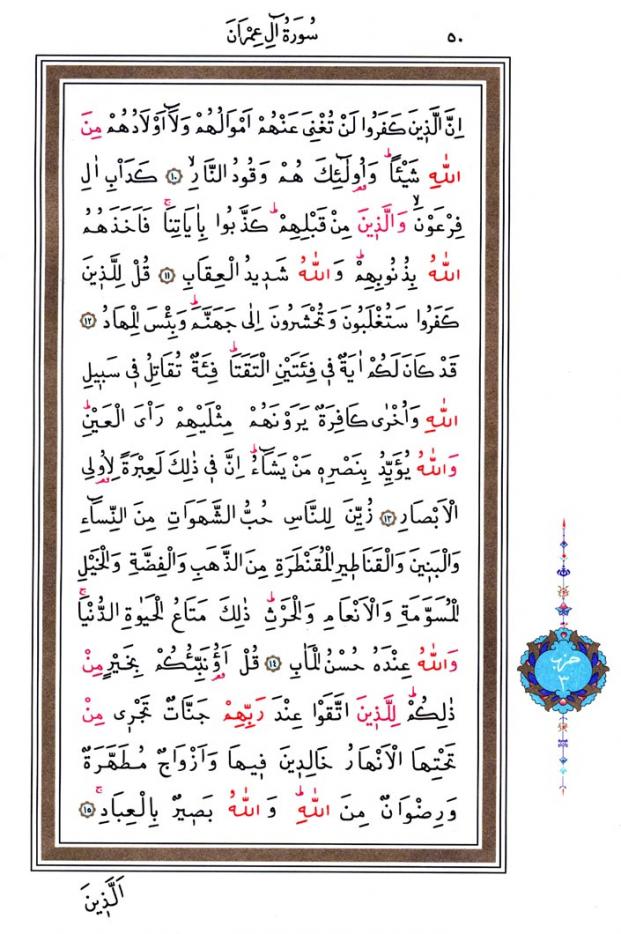 سُورَةُ اٰلِ عِمْرَانَ
٥٠
اِنَّ الَّذ۪ينَ كَفَرُوا لَنْ تُغْنِيَ عَنْهُمْ اَمْوَالُهُمْ وَلَٓا اَوْلَادُهُمْ مِنَ
اللّٰهِ شَيْـٔاًۜ وَاُو۬لٰٓئِكَ هُمْ وَقُودُ النَّارِۙ ﴿١٠﴾ كَدَأْبِ اٰلِ
فِرْعَوْنَۙ وَالَّذ۪ينَ مِنْ قَبْلِهِمْۜ كَذَّبُوا بِاٰيَاتِنَاۚ فَاَخَذَهُمُ
اللّٰهُ بِذُنُوبِهِمْۜ وَاللّٰهُ شَد۪يدُ الْعِقَابِ ﴿١١﴾ قُلْ لِلَّذ۪ينَ
كَفَرُوا سَتُغْلَبُونَ وَتُحْشَرُونَ اِلٰى جَهَنَّمَۜ وَبِئْسَ الْمِهَادُ ﴿١٢﴾
قَدْ كَانَ لَكُمْ اٰيَةٌ ف۪ي فِئَتَيْنِ الْتَقَتَاۜ فِئَةٌ تُقَاتِلُ ف۪ي سَب۪يلِ
اللّٰهِ وَاُخْرٰى كَافِرَةٌ يَرَوْنَهُمْ مِثْلَيْهِمْ رَأْيَ الْعَيْنِۜ
وَاللّٰهُ يُؤَيِّدُ بِنَصْرِه۪ مَنْ يَشَٓاءُۜ اِنَّ ف۪ي ذٰلِكَ لَعِبْرَةً لِاُو۬لِي
الْاَبْصَارِ ﴿١٣﴾ زُيِّنَ لِلنَّاسِ حُبُّ الشَّهَوَاتِ مِنَ النِّسَٓاءِ
وَالْبَن۪ينَ وَالْقَنَاط۪يرِ الْمُقَنْطَرَةِ مِنَ الذَّهَبِ وَالْفِضَّةِ وَالْخَيْلِ
الْمُسَوَّمَةِ وَالْاَنْعَامِ وَالْحَرْثِۜ ذٰلِكَ مَتَاعُ الْحَيٰوةِ الدُّنْيَاۚ
وَاللّٰهُ عِنْدَهُ حُسْنُ الْمَاٰبِ ﴿١٤﴾ قُلْ اَؤُ۬نَبِّئُكُمْ بِخَيْرٍ مِنْ
ذٰلِكُمْۜ لِلَّذ۪ينَ اتَّقَوْا عِنْدَ رَبِّهِمْ جَنَّاتٌ تَجْر۪ي مِنْ
تَحْتِهَا الْاَنْهَارُ خَالِد۪ينَ ف۪يهَا وَاَزْوَاجٌ مُطَهَّرَةٌ
وَرِضْوَانٌ مِنَ اللّٰهِۜ وَاللّٰهُ بَص۪يرٌ بِالْعِبَادِۚ ﴿١٥﴾
اَلَّذ۪ينَ
حزب
٣